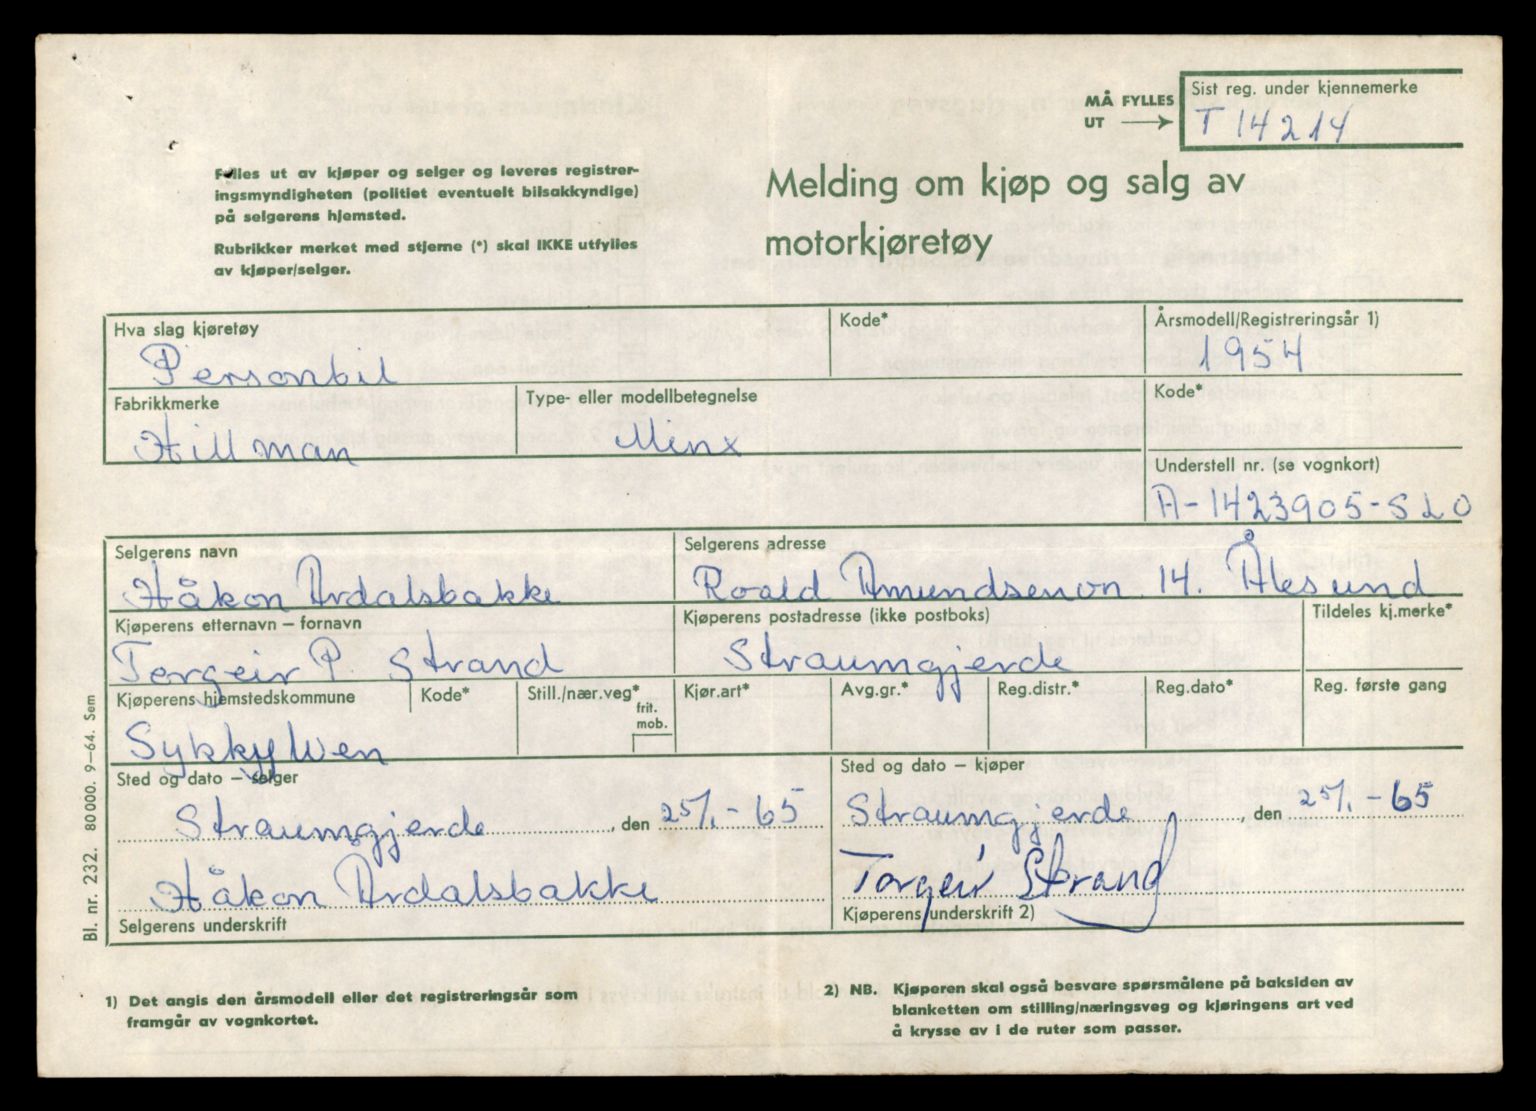 MÅ FYLLES UT
Sist reg. under kjennemerke
T 14214
Fylles ut av kjøper og selger og leveres registrer-
ingsmyndigheten (politiet eventuelt bilsakkyndige)
på selgerens hjemsted.
Rubrikker merket med stjerne (*) skal IKKE utfylles
av kjøper/selger.
Melding om kjøp og salg av
motorkjøretøy
Hva slag kjøretøy
Personbil
Kode*
Årsmodell/Registreringsår 1)
1954
Fabrikkmerke
Hillman
Type- eller modellbetegnelse
Minx
Kode*
Understell nr. (se vognkort)
A-1423905-SLO
Selgerens navn
Håkon Ardalsbakke
Selgerens adresse
Roald Amundsenvn. 14. Ålesund
Kjøperens etternavn – fornavn
Torgeir P. Strand
Kjøperens postadresse (ikke postboks)
Straumgjerde
Tildeles kj.merke*
Kjøperens hjemstedskommune
Sykkylven
Kode*
Still./nær.veg*
frit.
mob.
Kjør.art*
Avg.gr.*
Reg.distr.*
Reg.dato*
Reg. første gang
Sted og dato – selger
Straumgjerde, den 25/1-65
Sted og dato – kjøper
Straumgjerde, den 25/1-65
Håkon Ardalsbakke
Selgerens underskrift
Torgeir Strand
Kjøperens underskrift 2)
Bl. nr. 232. 80 000. 9–64. Sem
1) Det angis den årsmodell eller det registreringsår som
framgår av vognkortet.
2) NB. Kjøperen skal også besvare spørsmålene på baksiden av
blanketten om stilling/næringsveg og kjøringens art ved
å krysse av i de ruter som passer.